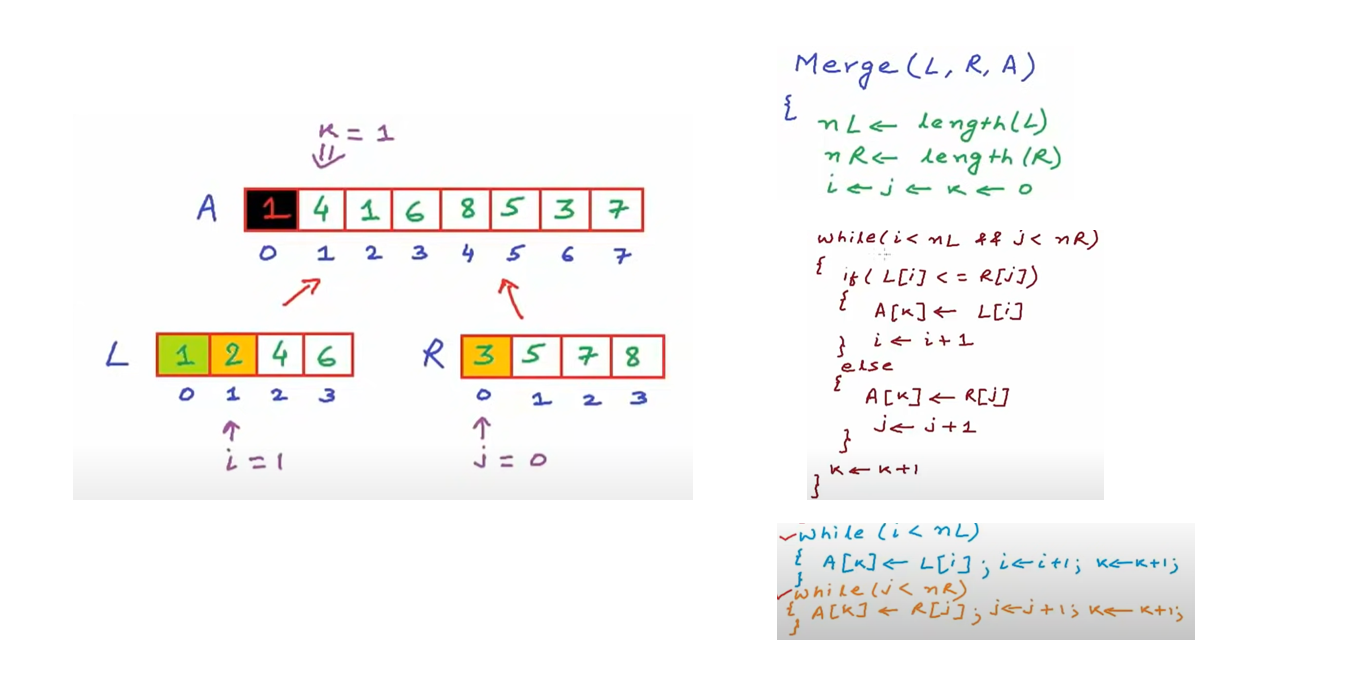 K = 1
A 1 4 1 6 8 5 3 7
0 1 2 3 4 5 6 7
L 1 2 4 6
0 1 2 3
i = 1
R 3 5 7 8
0 1 2 3
j = 0
Merge(L, R, A)
{
nL ← length(L)
nR ← length(R)
i ← j ← K ← 0
while(i < nL && j < nR)
{ if( L[i] <= R[j])
{ A[K] ← L[i]
} i ← i+1
else
{
A[K] ← R[j]
j ← j+1
}
K ← K+1
}
while (i < nL)
{ A[K] ← L[i]; i←i+1; K←K+1;
}
while(j < nR)
{ A[K] ← R[j]; j←j+1; K← K+1;
}